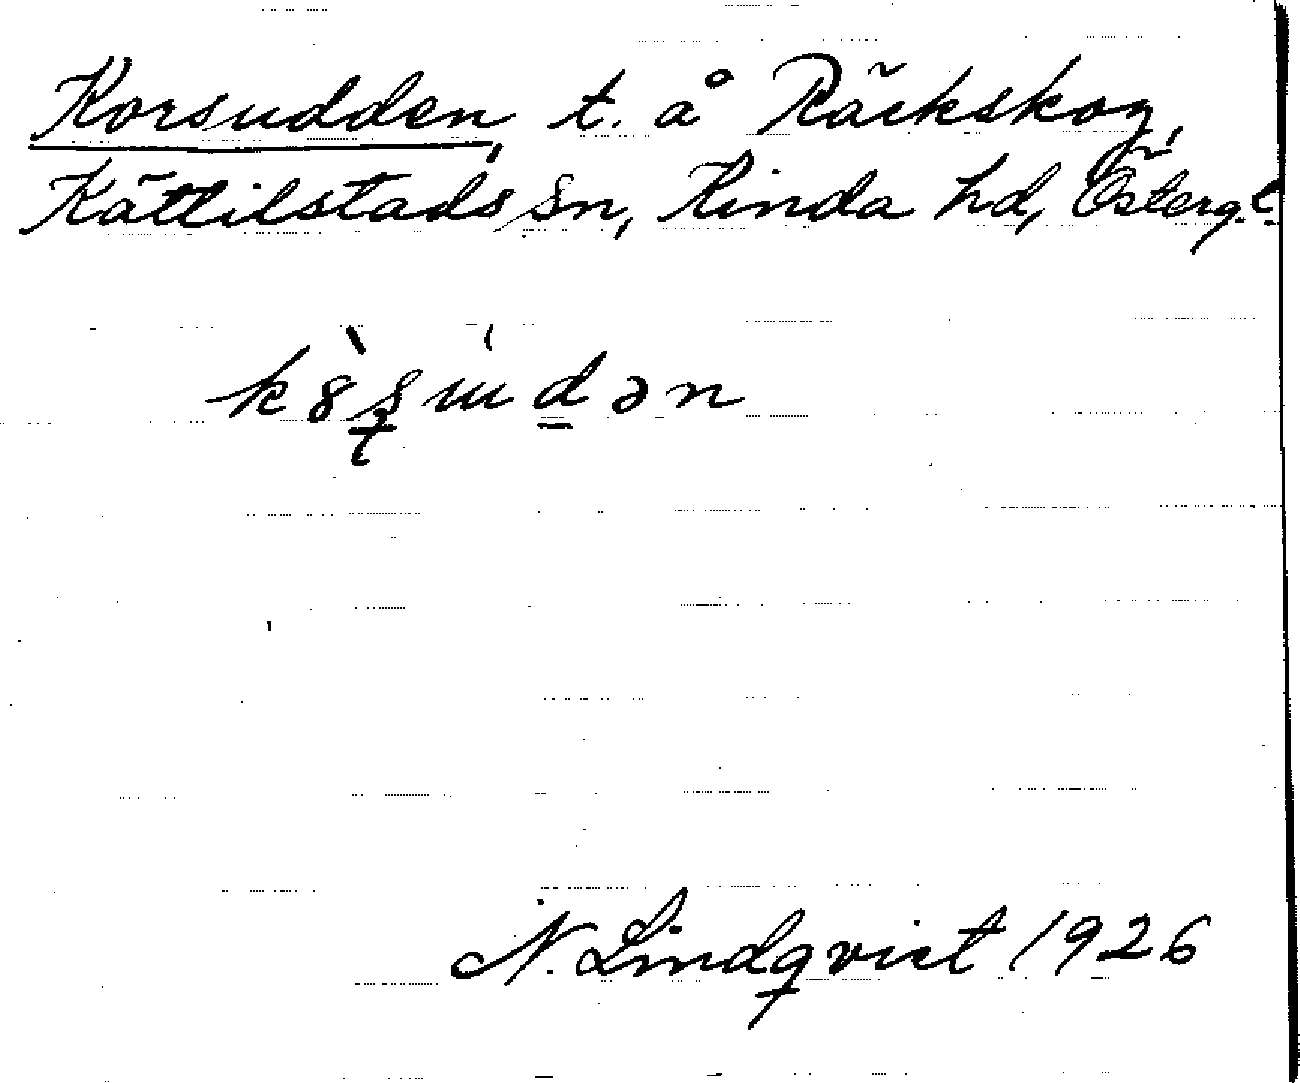 Korsudden, t. å Räckskog,
Kättilstads sn, Kinda hd, Österg.l.
N. Lindqvist 1926